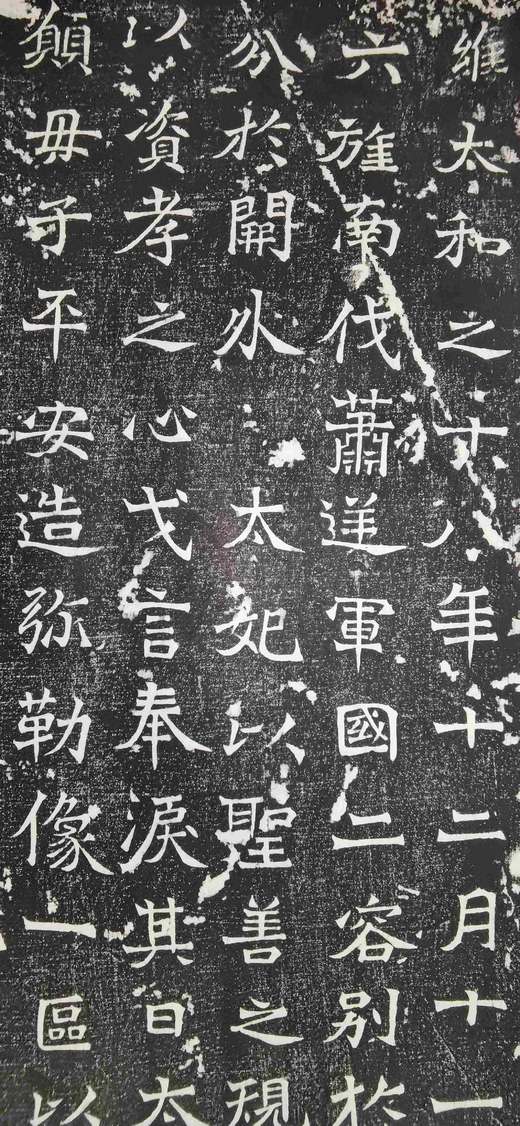 維太和之十八年十二月十一
六旌南伐蕭逆軍國二容别於
分於開外太妃以聖善之規
以資孝之心戈言奉淚其日太
願毋子平安造弥勒像一區以